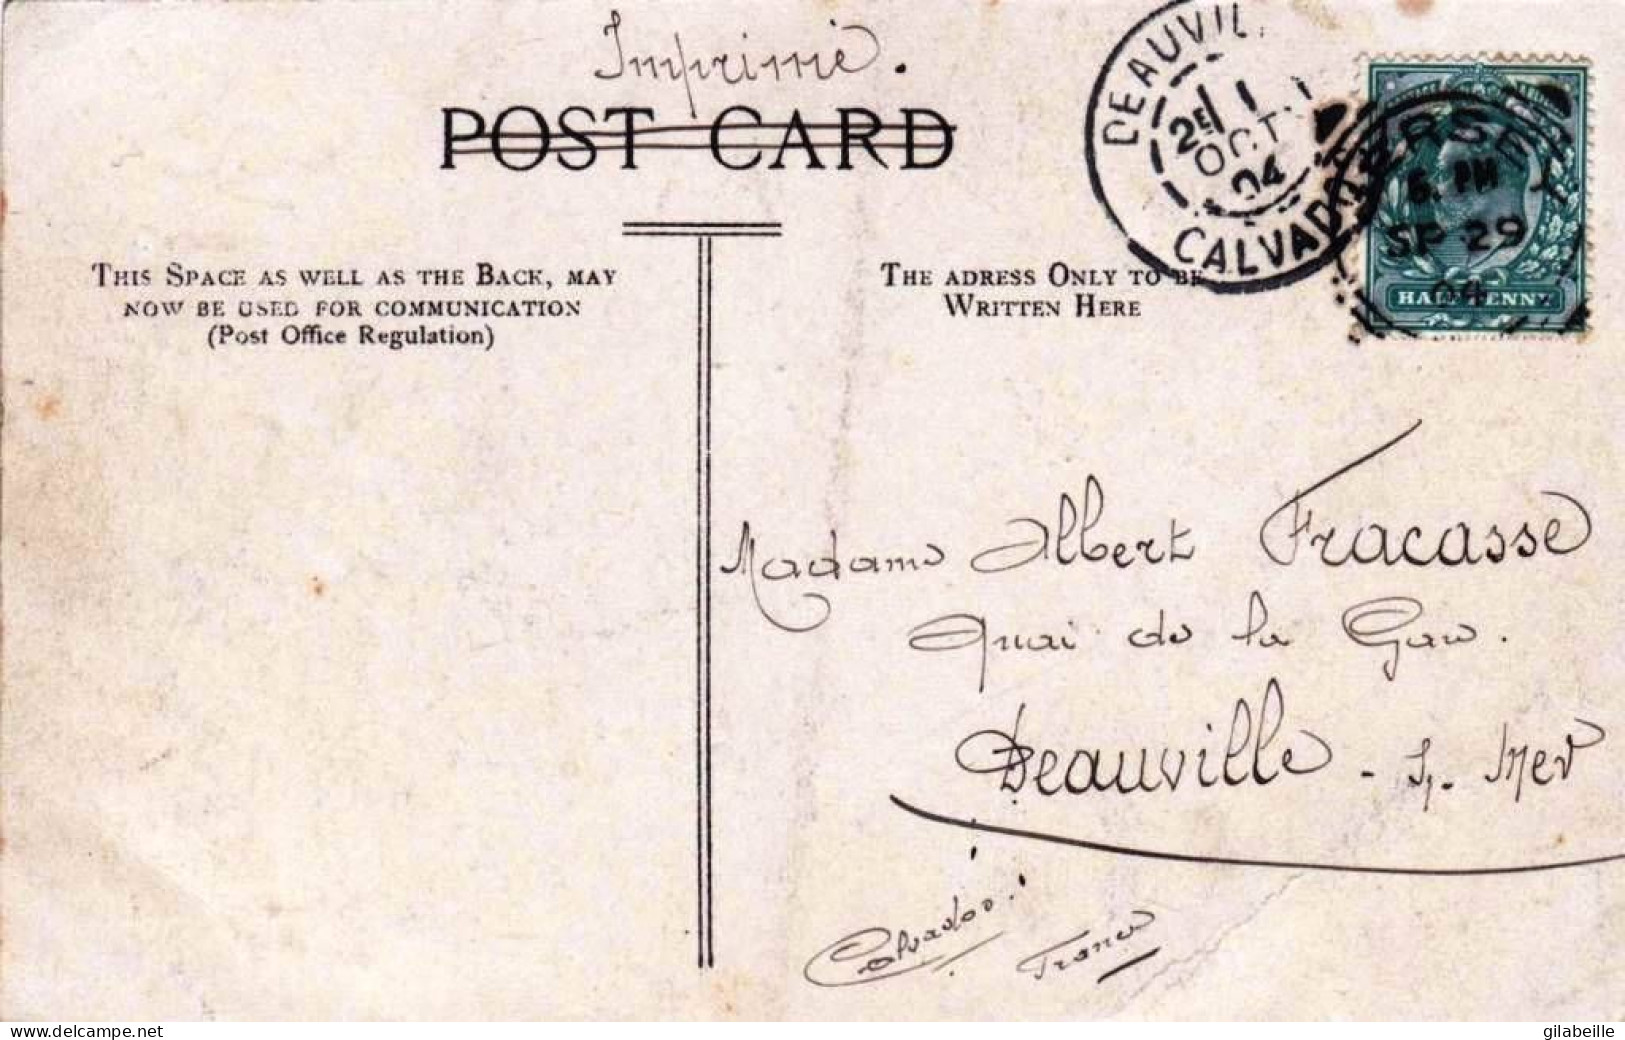 Imprimé.
POST CARD
DEAUVIL
2E 1
OCT
04
CALVADOS
ERSEY
6. PM
SP 29
04
HALFPENNY
THIS SPACE AS WELL AS THE BACK, MAY
NOW BE USED FOR COMMUNICATION
(Post Office Regulation)
THE ADRESS ONLY TO BE
WRITTEN HERE
Madame Albert Fracasse
Quai de la Gare.
Deauville - s/. Mer
Calvados.
France
www.delcampe.net
gilabeille